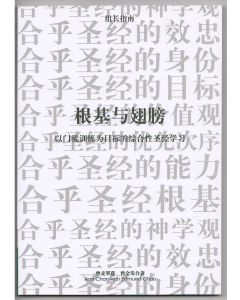 组长指南
合乎圣经的效忠
合乎圣经的身份
合乎圣经的目标
值观
根基与翅膀
以门徒训练为目标的综合性圣经学习
合乎圣经的能力
合乎圣经根基
合乎圣经的神学观
合乎圣经的效忠
合著
Ann Chan with Edmund Chan
合乎圣经的身份